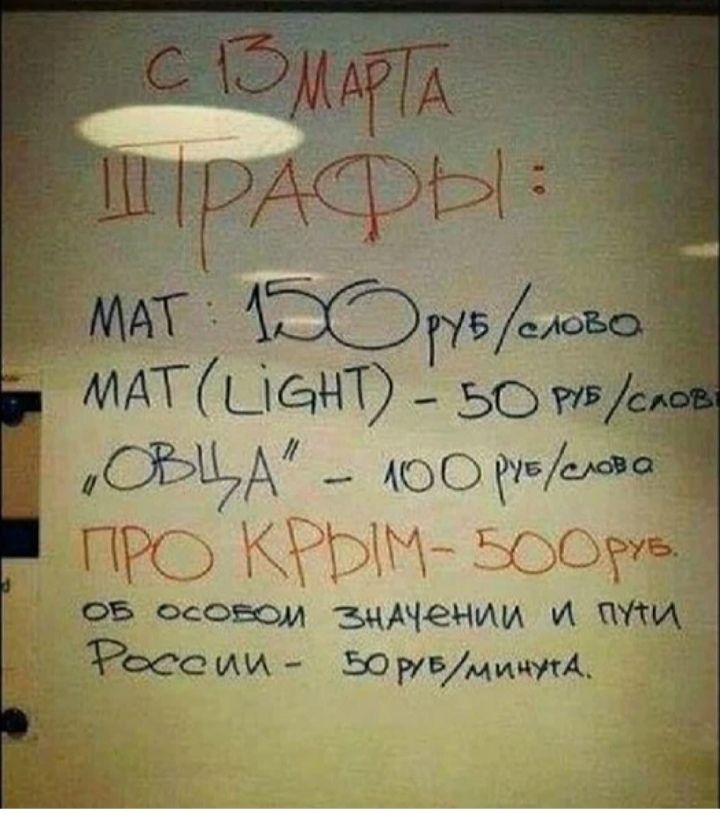 С 13 МАРТА
ШТРАФЫ:
МАТ: 150 руб/слово
МАТ (LiGHT) - 50 руб/слов
„ОВЦА" - 100 руб/слова
ПРО КРЫМ - 500 руб.
об особом значении и пути
России - 50 руб/минута.